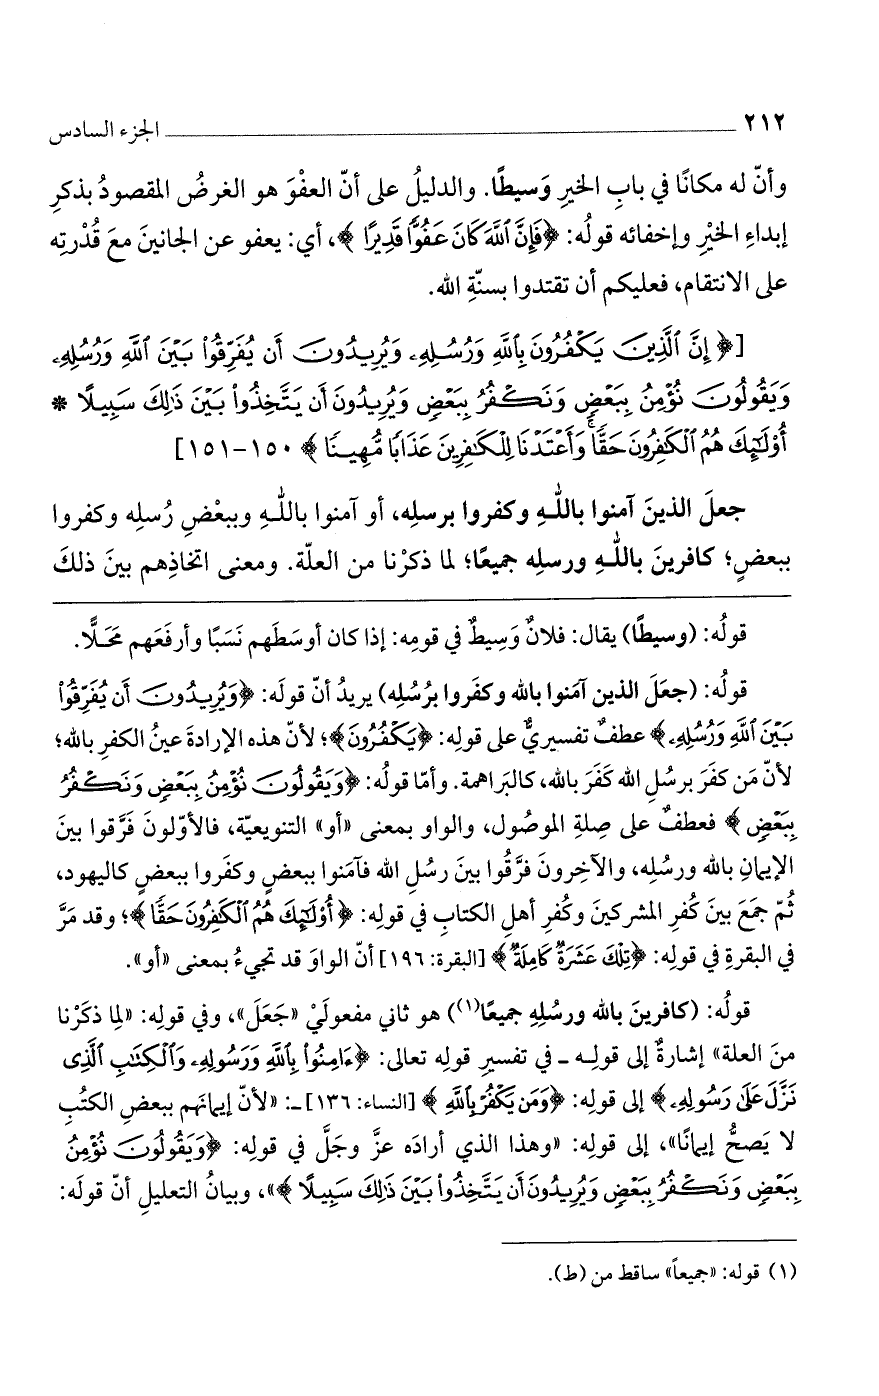 ٢١٢ الجزء السادس
وأنّ له مكانًا في بابِ الخيرِ وَسيطًا. والدليلُ على أنّ العفْوَ هو الغرضُ المقصودُ بذكرِ
إبداءِ الخيْرِ وإخفائه قولُه: ﴿فَإِنَّ ٱللَّهَ كَانَ عَفُوًّا قَدِيرًا﴾، أي: يعفو عن الجانينَ معَ قُدْرتِه
على الانتقام، فعليكم أن تقتدوا بسنّةِ الله.
[﴿إِنَّ ٱلَّذِينَ يَكْفُرُونَ بِٱللَّهِ وَرُسُلِهِۦ وَيُرِيدُونَ أَن يُفَرِّقُوا۟ بَيْنَ ٱللَّهِ وَرُسُلِهِۦ
وَيَقُولُونَ نُؤْمِنُ بِبَعْضٍ وَنَكْفُرُ بِبَعْضٍ وَيُرِيدُونَ أَن يَتَّخِذُوا۟ بَيْنَ ذَٰلِكَ سَبِيلًا *
أُو۟لَٰٓئِكَ هُمُ ٱلْكَٰفِرُونَ حَقًّا ۚ وَأَعْتَدْنَا لِلْكَٰفِرِينَ عَذَابًا مُّهِينًا﴾ ١٥٠-١٥١]
جعلَ الذينَ آمنوا باللهِ وكفروا برسلِه، أو آمنوا باللهِ وببعْضِ رُسلِه وكفروا
ببعضٍ؛ كافرينَ باللهِ ورسلِه جميعًا؛ لما ذكرْنا من العلّة. ومعنى اتخاذِهم بينَ ذلكَ
قولُه: (وسيطًا) يقال: فلانٌ وَسِيطٌ في قومِه: إذا كان أوسَطَهم نَسَبًا وأرفَعَهم مَحَلًّا.
قولُه: (جعَلَ الذين آمَنوا بالله وكفَروا برُسُلِه) يريدُ أنّ قولَه: ﴿وَيُرِيدُونَ أَن يُفَرِّقُوا۟
بَيْنَ ٱللَّهِ وَرُسُلِهِۦ﴾ عطفٌ تفسيريٌّ على قولِه: ﴿يَكْفُرُونَ﴾؛ لأنّ هذه الإرادةَ عينُ الكفرِ بالله؛
لأنّ مَن كفَرَ برسُلِ الله كَفَرَ بالله، كالبَراهمة. وأمّا قولُه: ﴿وَيَقُولُونَ نُؤْمِنُ بِبَعْضٍ وَنَكْفُرُ
بِبَعْضٍ﴾ فعطفٌ على صِلةِ الموصُول، والواو بمعنى «أو» التنويعيّة، فالأوّلونَ فَرَّقوا بينَ
الإيمانِ بالله ورسُلِه، والآخِرونَ فرَّقُوا بينَ رسُلِ الله فآمَنوا ببعضٍ وكفَروا ببعضٍ كاليهود،
ثُمّ جمَعَ بينَ كُفرِ المشركينَ وكُفرِ أهلِ الكتابِ في قولِه: ﴿أُو۟لَٰٓئِكَ هُمُ ٱلْكَٰفِرُونَ حَقًّا﴾؛ وقد مَرَّ
في البقرةِ في قولِه: ﴿تِلْكَ عَشَرَةٌ كَامِلَةٌ﴾ [البقرة: ١٩٦] أنّ الواوَ قد تجيءُ بمعنى «أو».
قولُه: (كافرينَ بالله ورسُلِهِ جميعًا(١)) هو ثاني مفعوليْ «جَعَلَ»، وفي قولِه: «لِما ذكَرْنا
منَ العلة» إشارةٌ إلى قولِه ـ في تفسيرِ قولِه تعالى: ﴿ءَامِنُوا۟ بِٱللَّهِ وَرَسُولِهِۦ وَٱلْكِتَٰبِ ٱلَّذِى
نَزَّلَ عَلَىٰ رَسُولِهِۦ﴾ إلى قولِه: ﴿وَمَن يَكْفُرْ بِٱللَّهِ﴾ [النساء: ١٣٦] ـ: «لأنّ إيمانَهم ببعضِ الكتُبِ
لا يَصحُّ إيمانًا»، إلى قولِه: «وهذا الذي أرادَه عزَّ وجَلَّ في قولِه: ﴿وَيَقُولُونَ نُؤْمِنُ
بِبَعْضٍ وَنَكْفُرُ بِبَعْضٍ وَيُرِيدُونَ أَن يَتَّخِذُوا۟ بَيْنَ ذَٰلِكَ سَبِيلًا﴾»، وبيانُ التعليلِ أنّ قولَه:
(١) قوله: «جميعاً» ساقط من (ط).